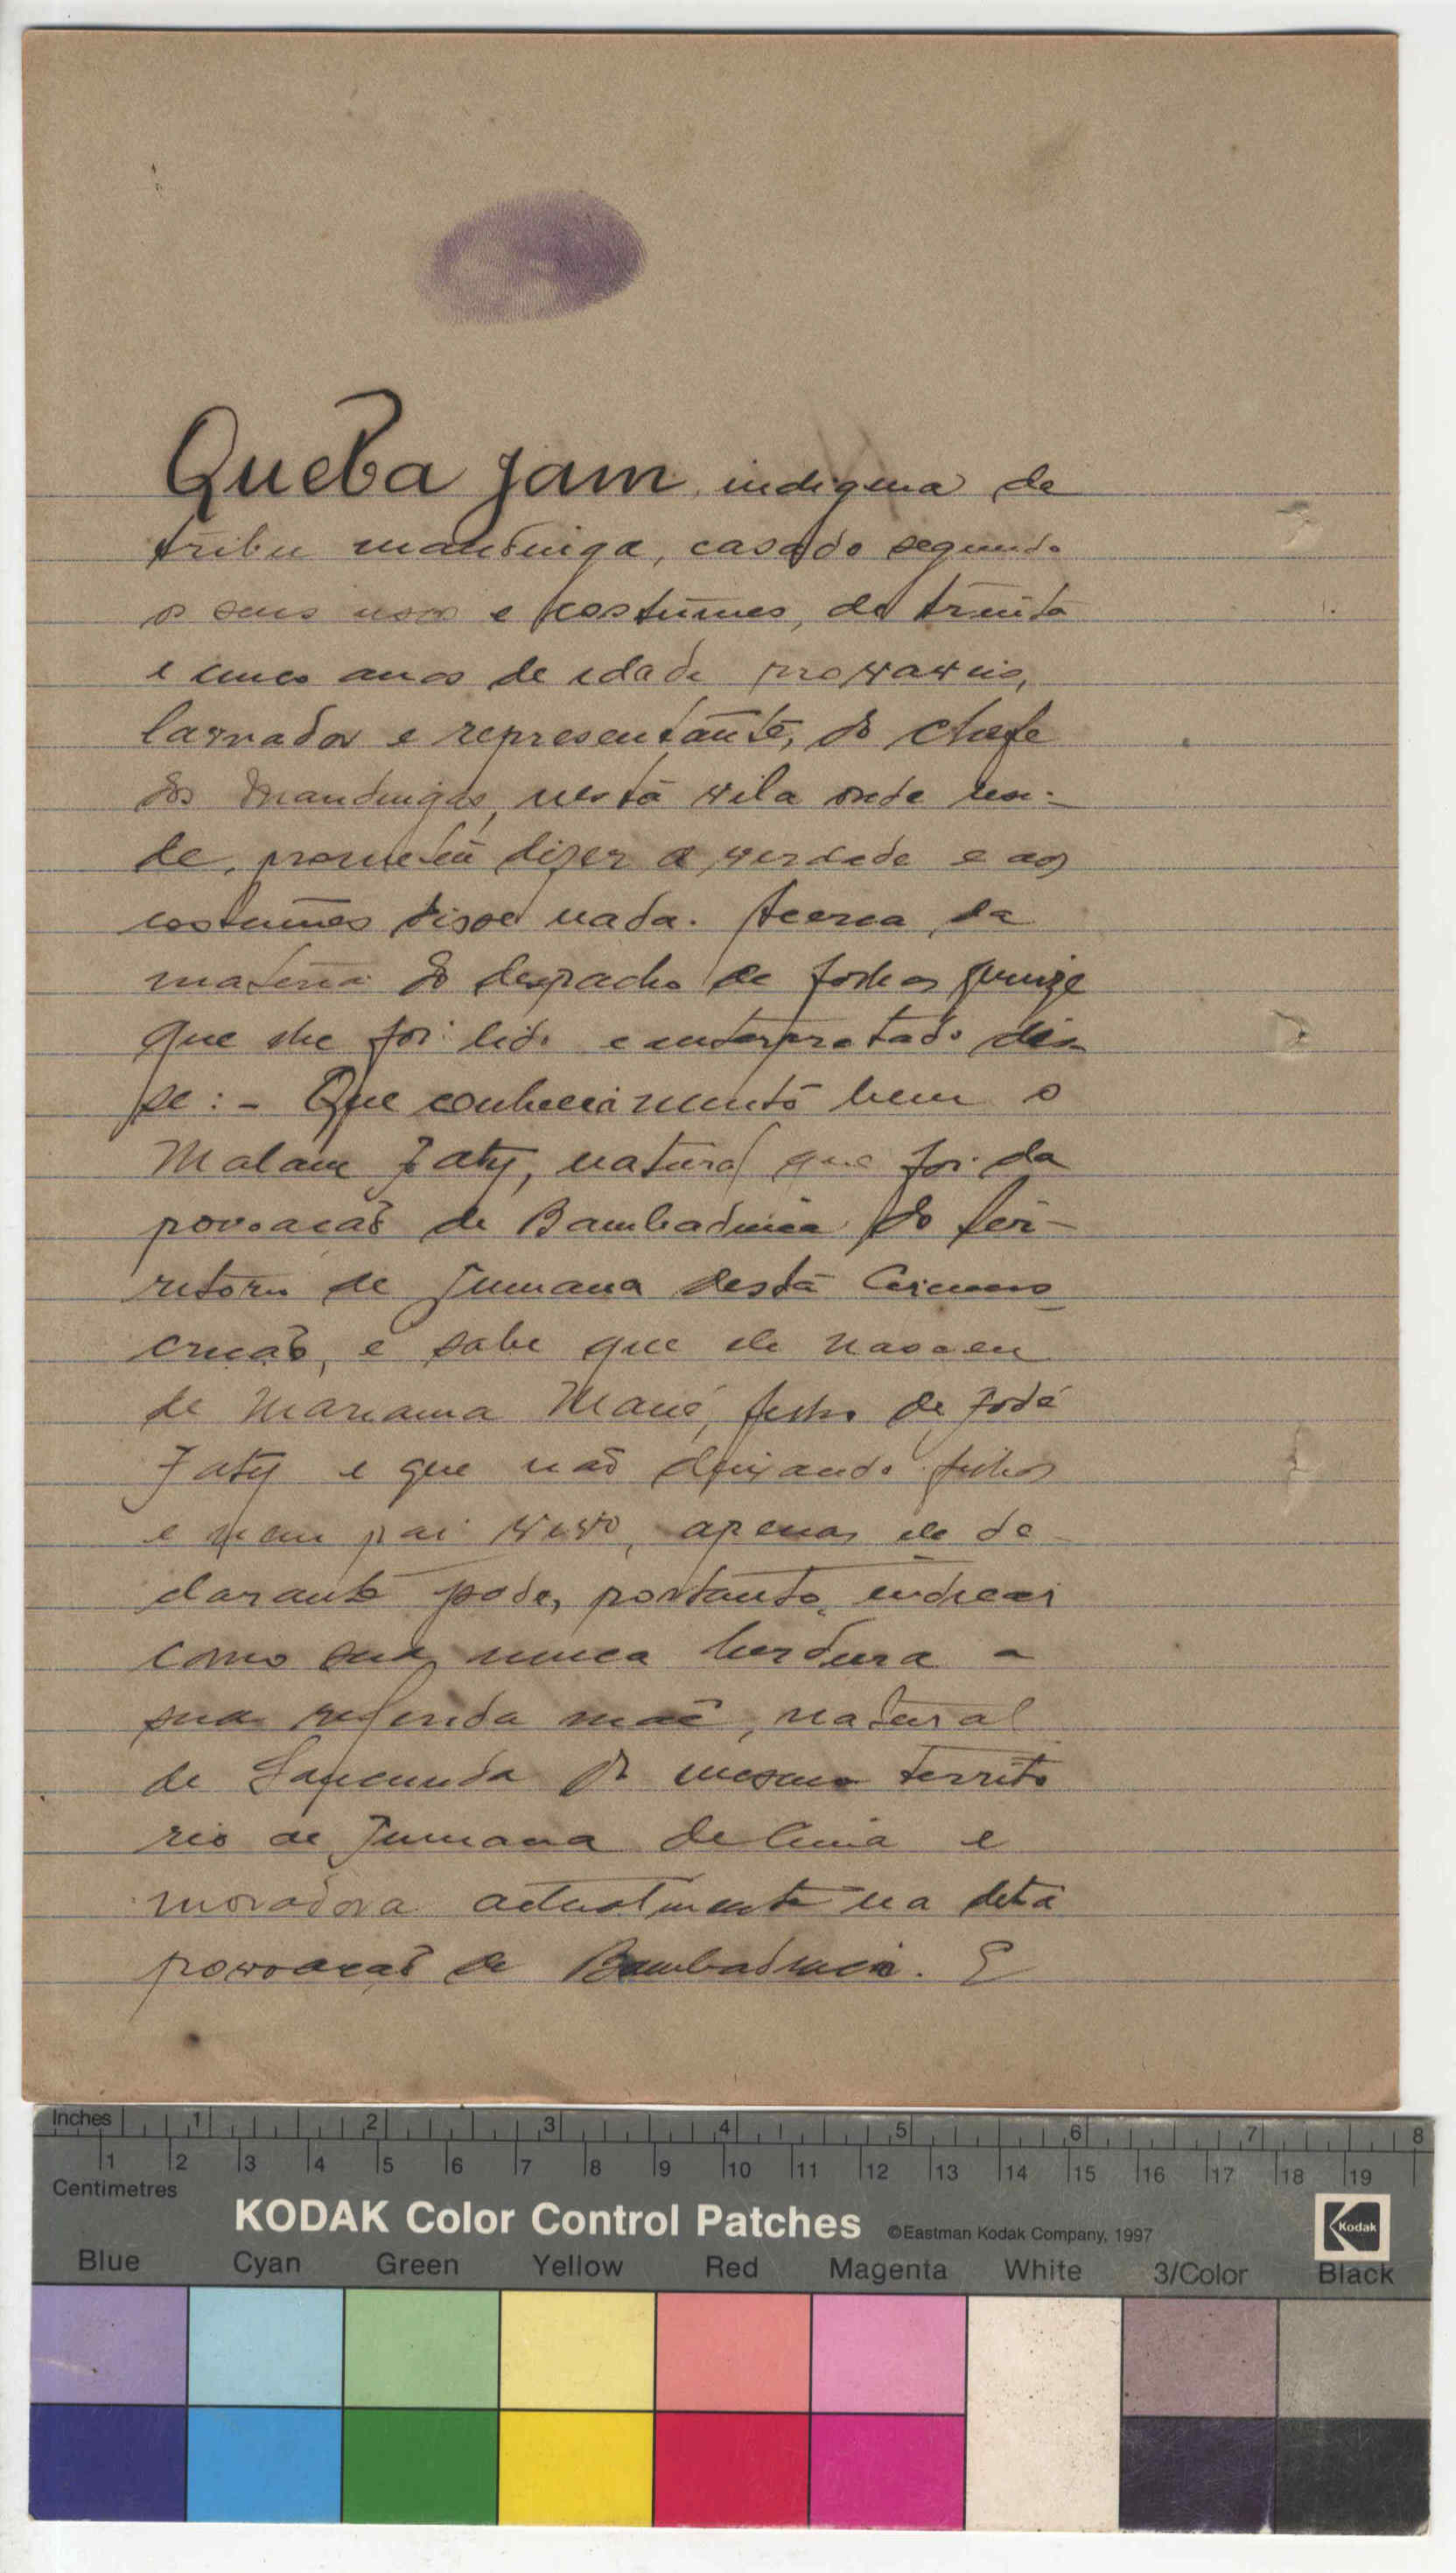 Queba Jam, indigena de
tribu mandinga, casado segundo
os seus usos e costumes, de trinta
e cinco anos de edade
lavrador e representante, do chefe
dos Mandingas, nesta vila onde resi-
de, prometeu dizer a verdade e aos
costumes disse nada. Acerca da
materia do despacho de folhas quinze
que lhe foi lido e interpretado dis-
se: - Que bem o
Malam Jaty, natural que foi da
povoacão de Bambadinca do ter-
ritorio de Jumana desta Circuns-
cricão, e sabe que ele nasceu
de Mariama Mané, filho de Fodé
Jaty e que não deixando filhos
e nem pai vivo, apenas ele de-
clarante pode, portanto, indicar
como sua unica herdeira a
sua referida mãe, natural
de do mesmo territo
rio de Jumana de Cima e
moradora actualmente na dita
povoacão de Bambadinca. E
Inches 1 2 3 4 5 6 7 8
1 2 3 4 5 6 7 8 9 10 11 12 13 14 15 16 17 18 19
Centimetres
KODAK Color Control Patches ©Eastman Kodak Company, 1997 Kodak
Blue Cyan Green Yellow Red Magenta White 3/Color Black